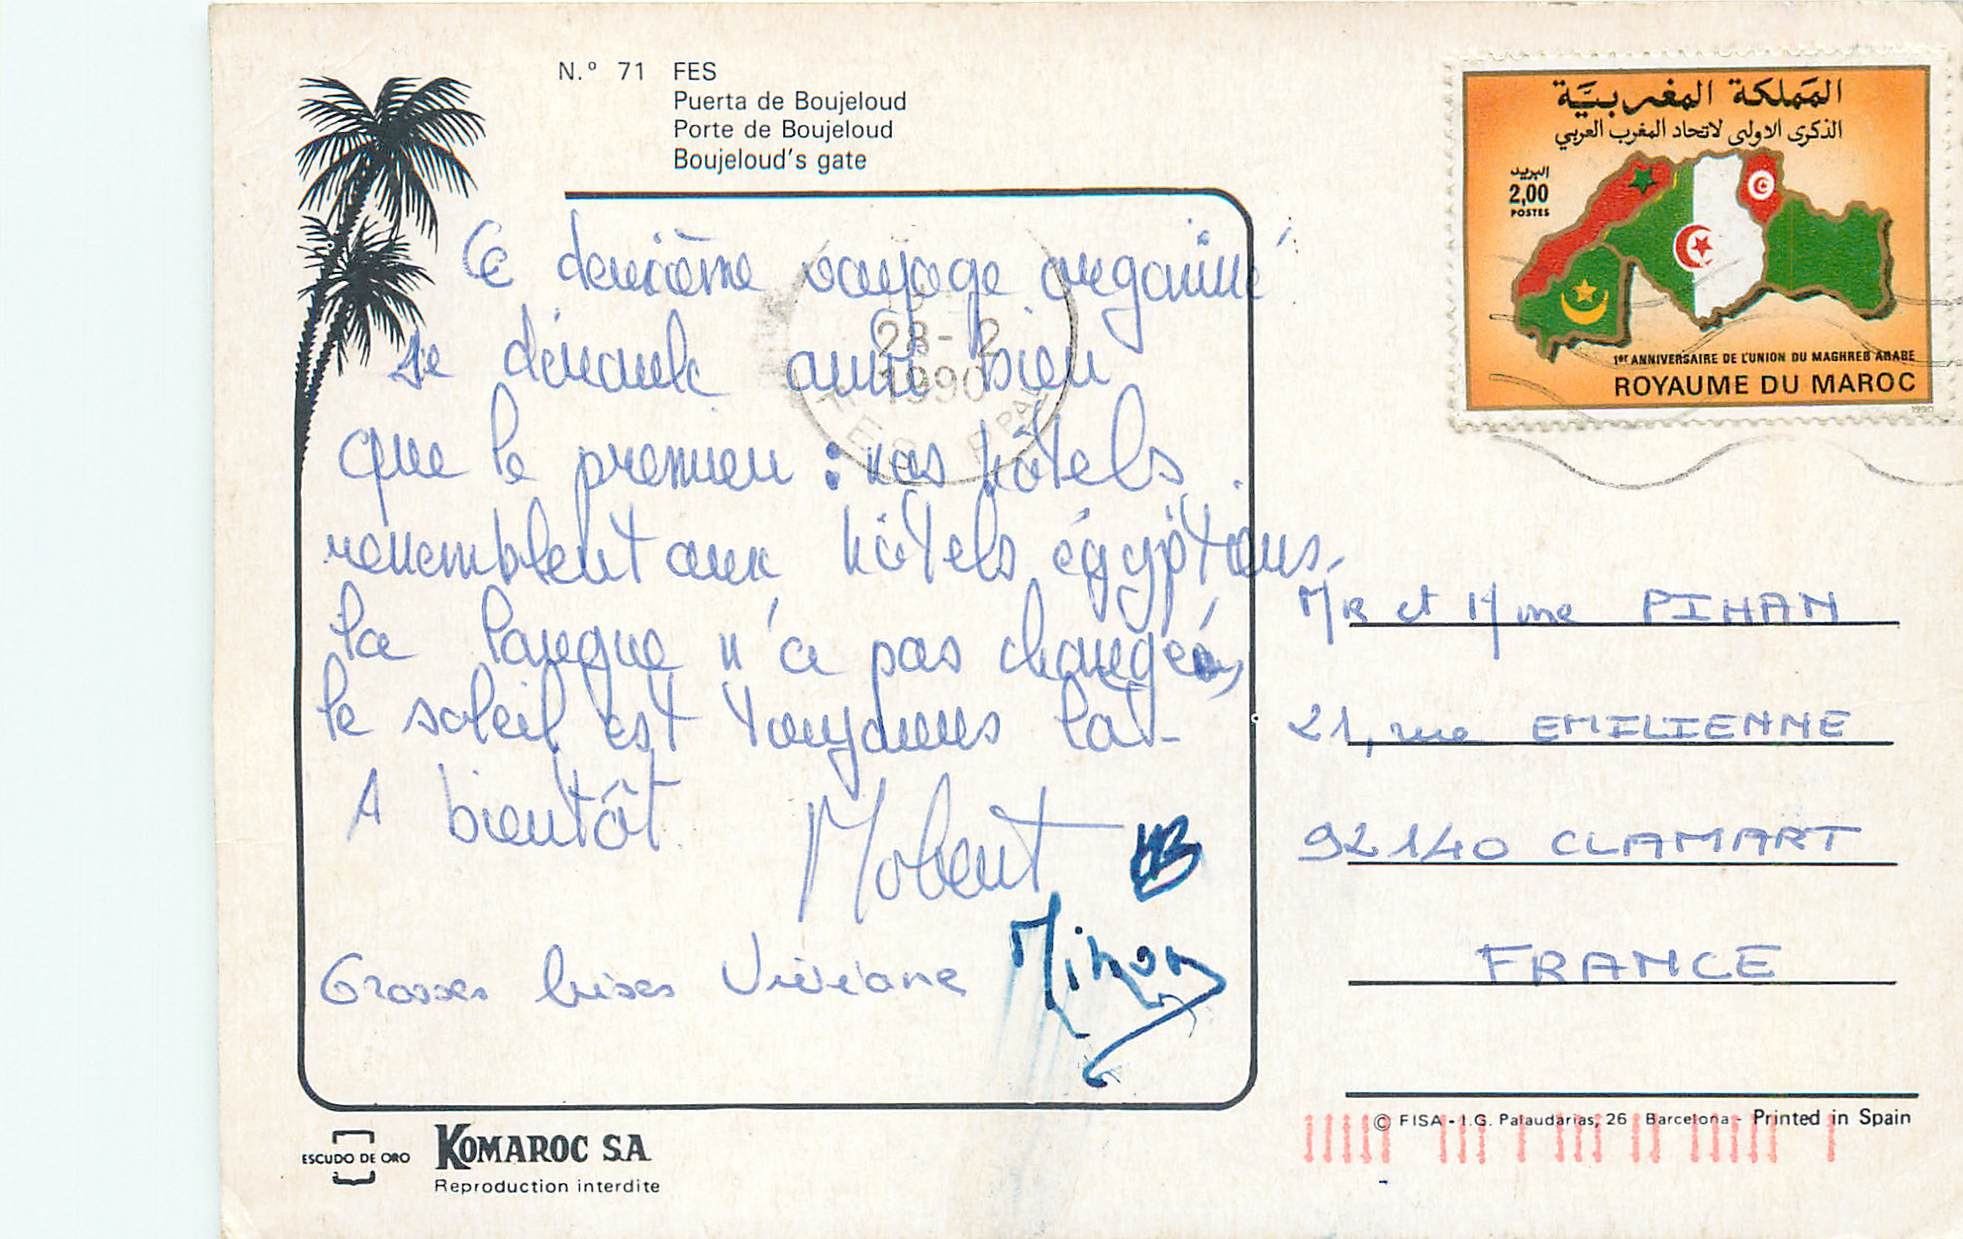 N.º 71 FES
Puerta de Boujeloud
Porte de Boujeloud
Boujeloud's gate
Ce deuxième voyage organisé
se déroule aussi bien
que le premier : nos hôtels
ressemblent aux hôtels égyptiens,
la langue n'a pas changée,
le soleil est toujours là.
A bientôt
Grosses bises Viviane
المملكة المغربية
الذكرى الاولى لاتحاد المغرب العربي
البريد
2,00
POSTES
1er ANNIVERSAIRE DE L'UNION DU MAGHREB ARABE
ROYAUME DU MAROC
1990
28-2
1990
FES PPAL
Mr et Mme PIHAN
21, rue EMILIENNE
92140 CLAMART
FRANCE
ESCUDO DE ORO
KOMAROC S.A.
Reproduction interdite
© FISA - I.G. Palaudarias, 26 Barcelona - Printed in Spain